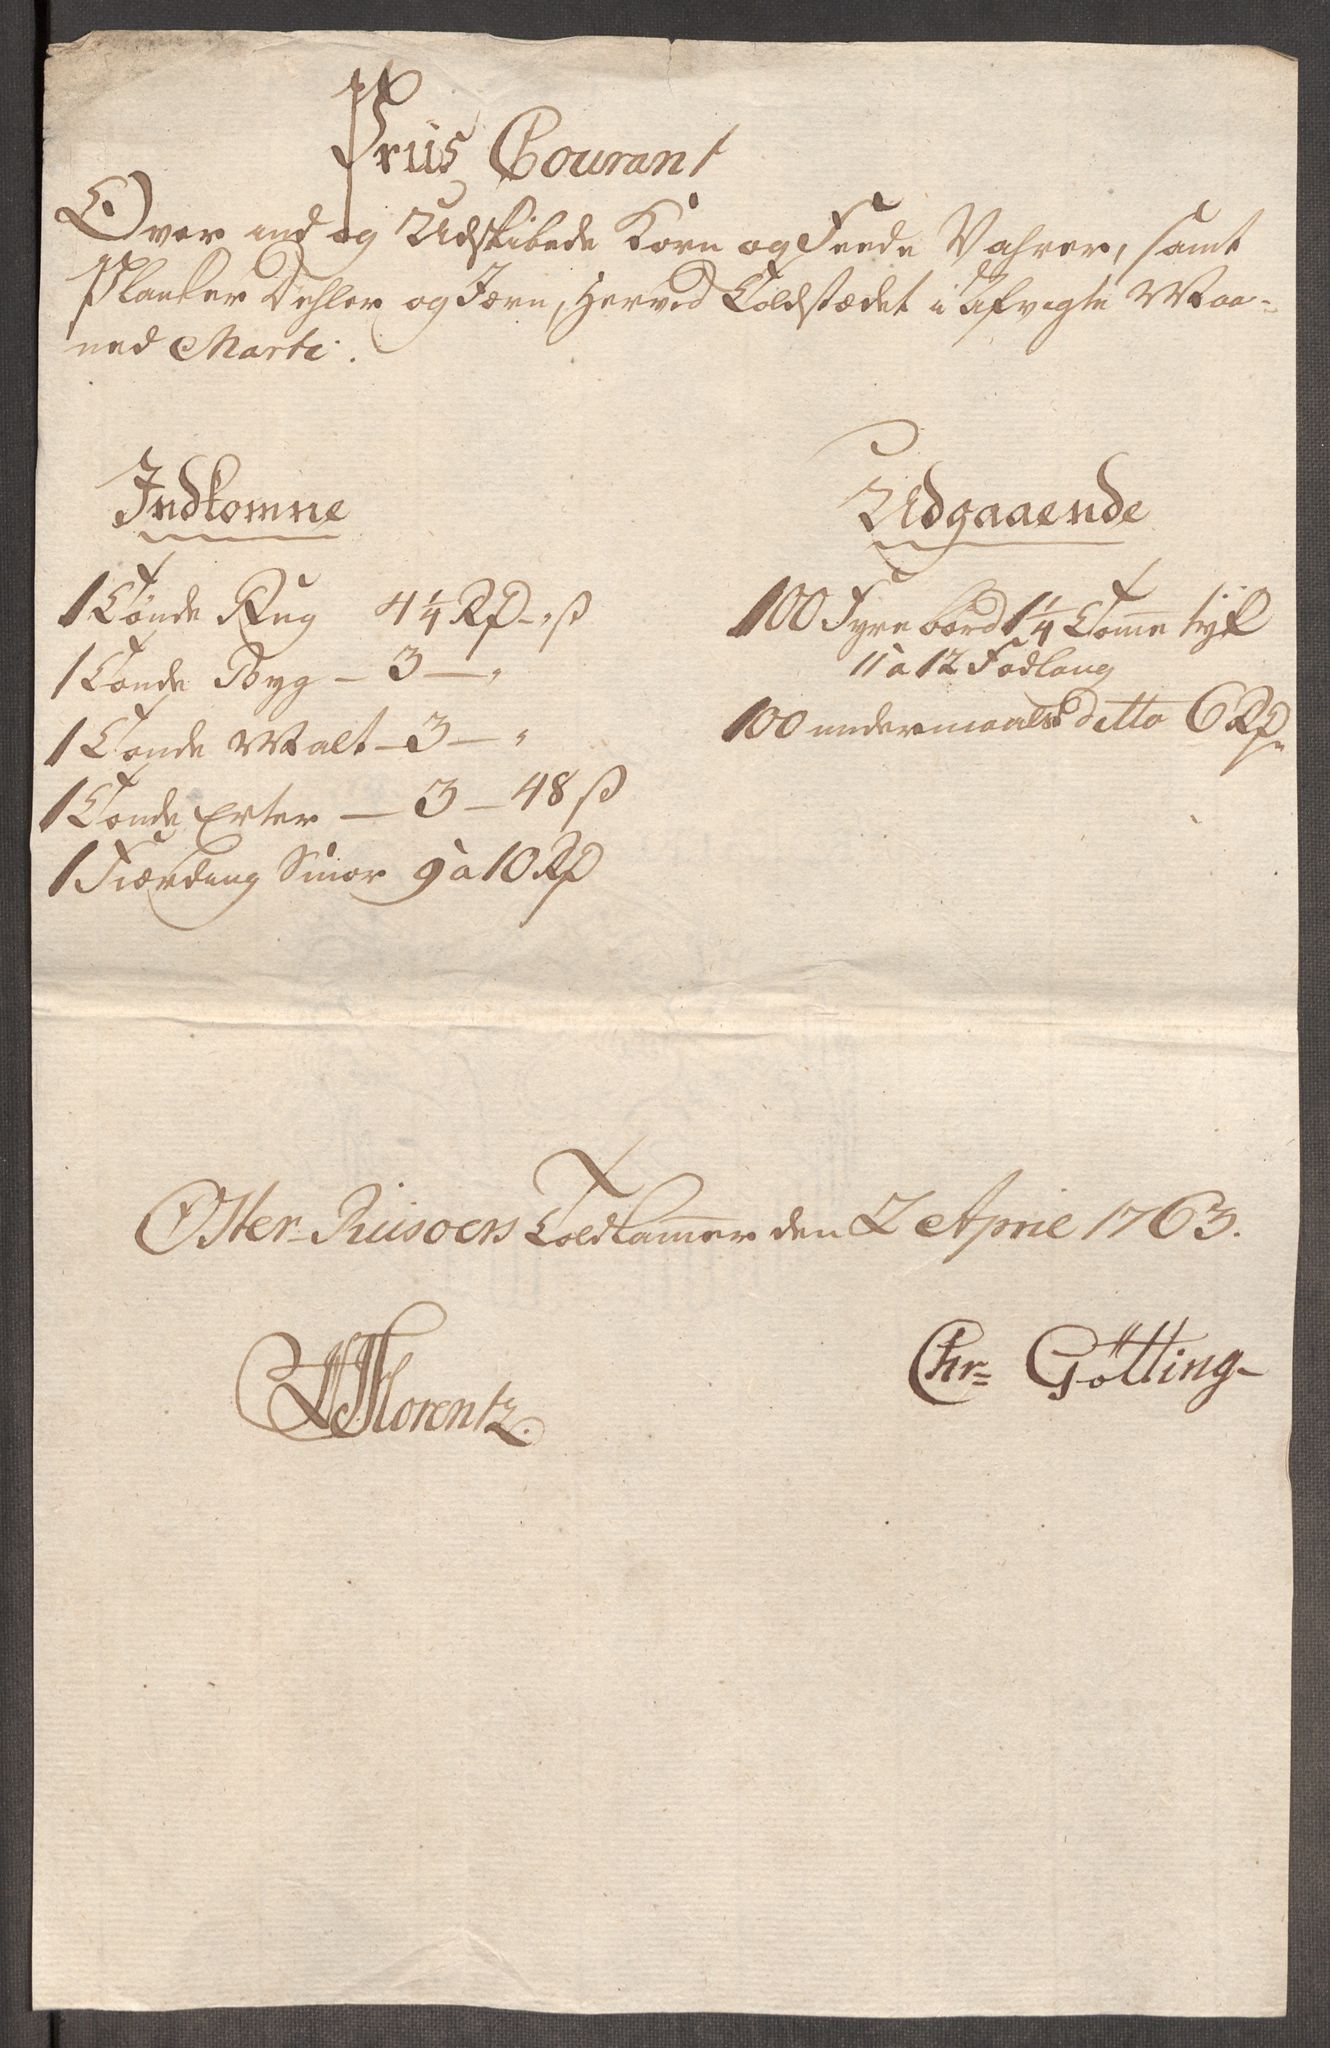 Priis Courant
Over ind og Udskibede Korn og Feede Vahrer, samt
Planker Dehler og Jærn, Hervid Toldstædet i afvigte Maa-
ned Marti.
Indkomne
1 Tønde Rug 4 1/4 Rd - " ß
1 Tønde Byg - 3 - "
1 Tønde Malt - 3 - "
1 Tønde Erter - 3 - 48 ß
1 Fiærding Smør 9 a 10 Rd
Udgaaende
100 Fyrre bord 1 1/4 Tomme tyk
11 a 12 Fod lang
100 undermaals ditto 6 Rd
Øster-Riisøers Toldkammer den 2 April 1763.
Florentz.
Chr= Götting